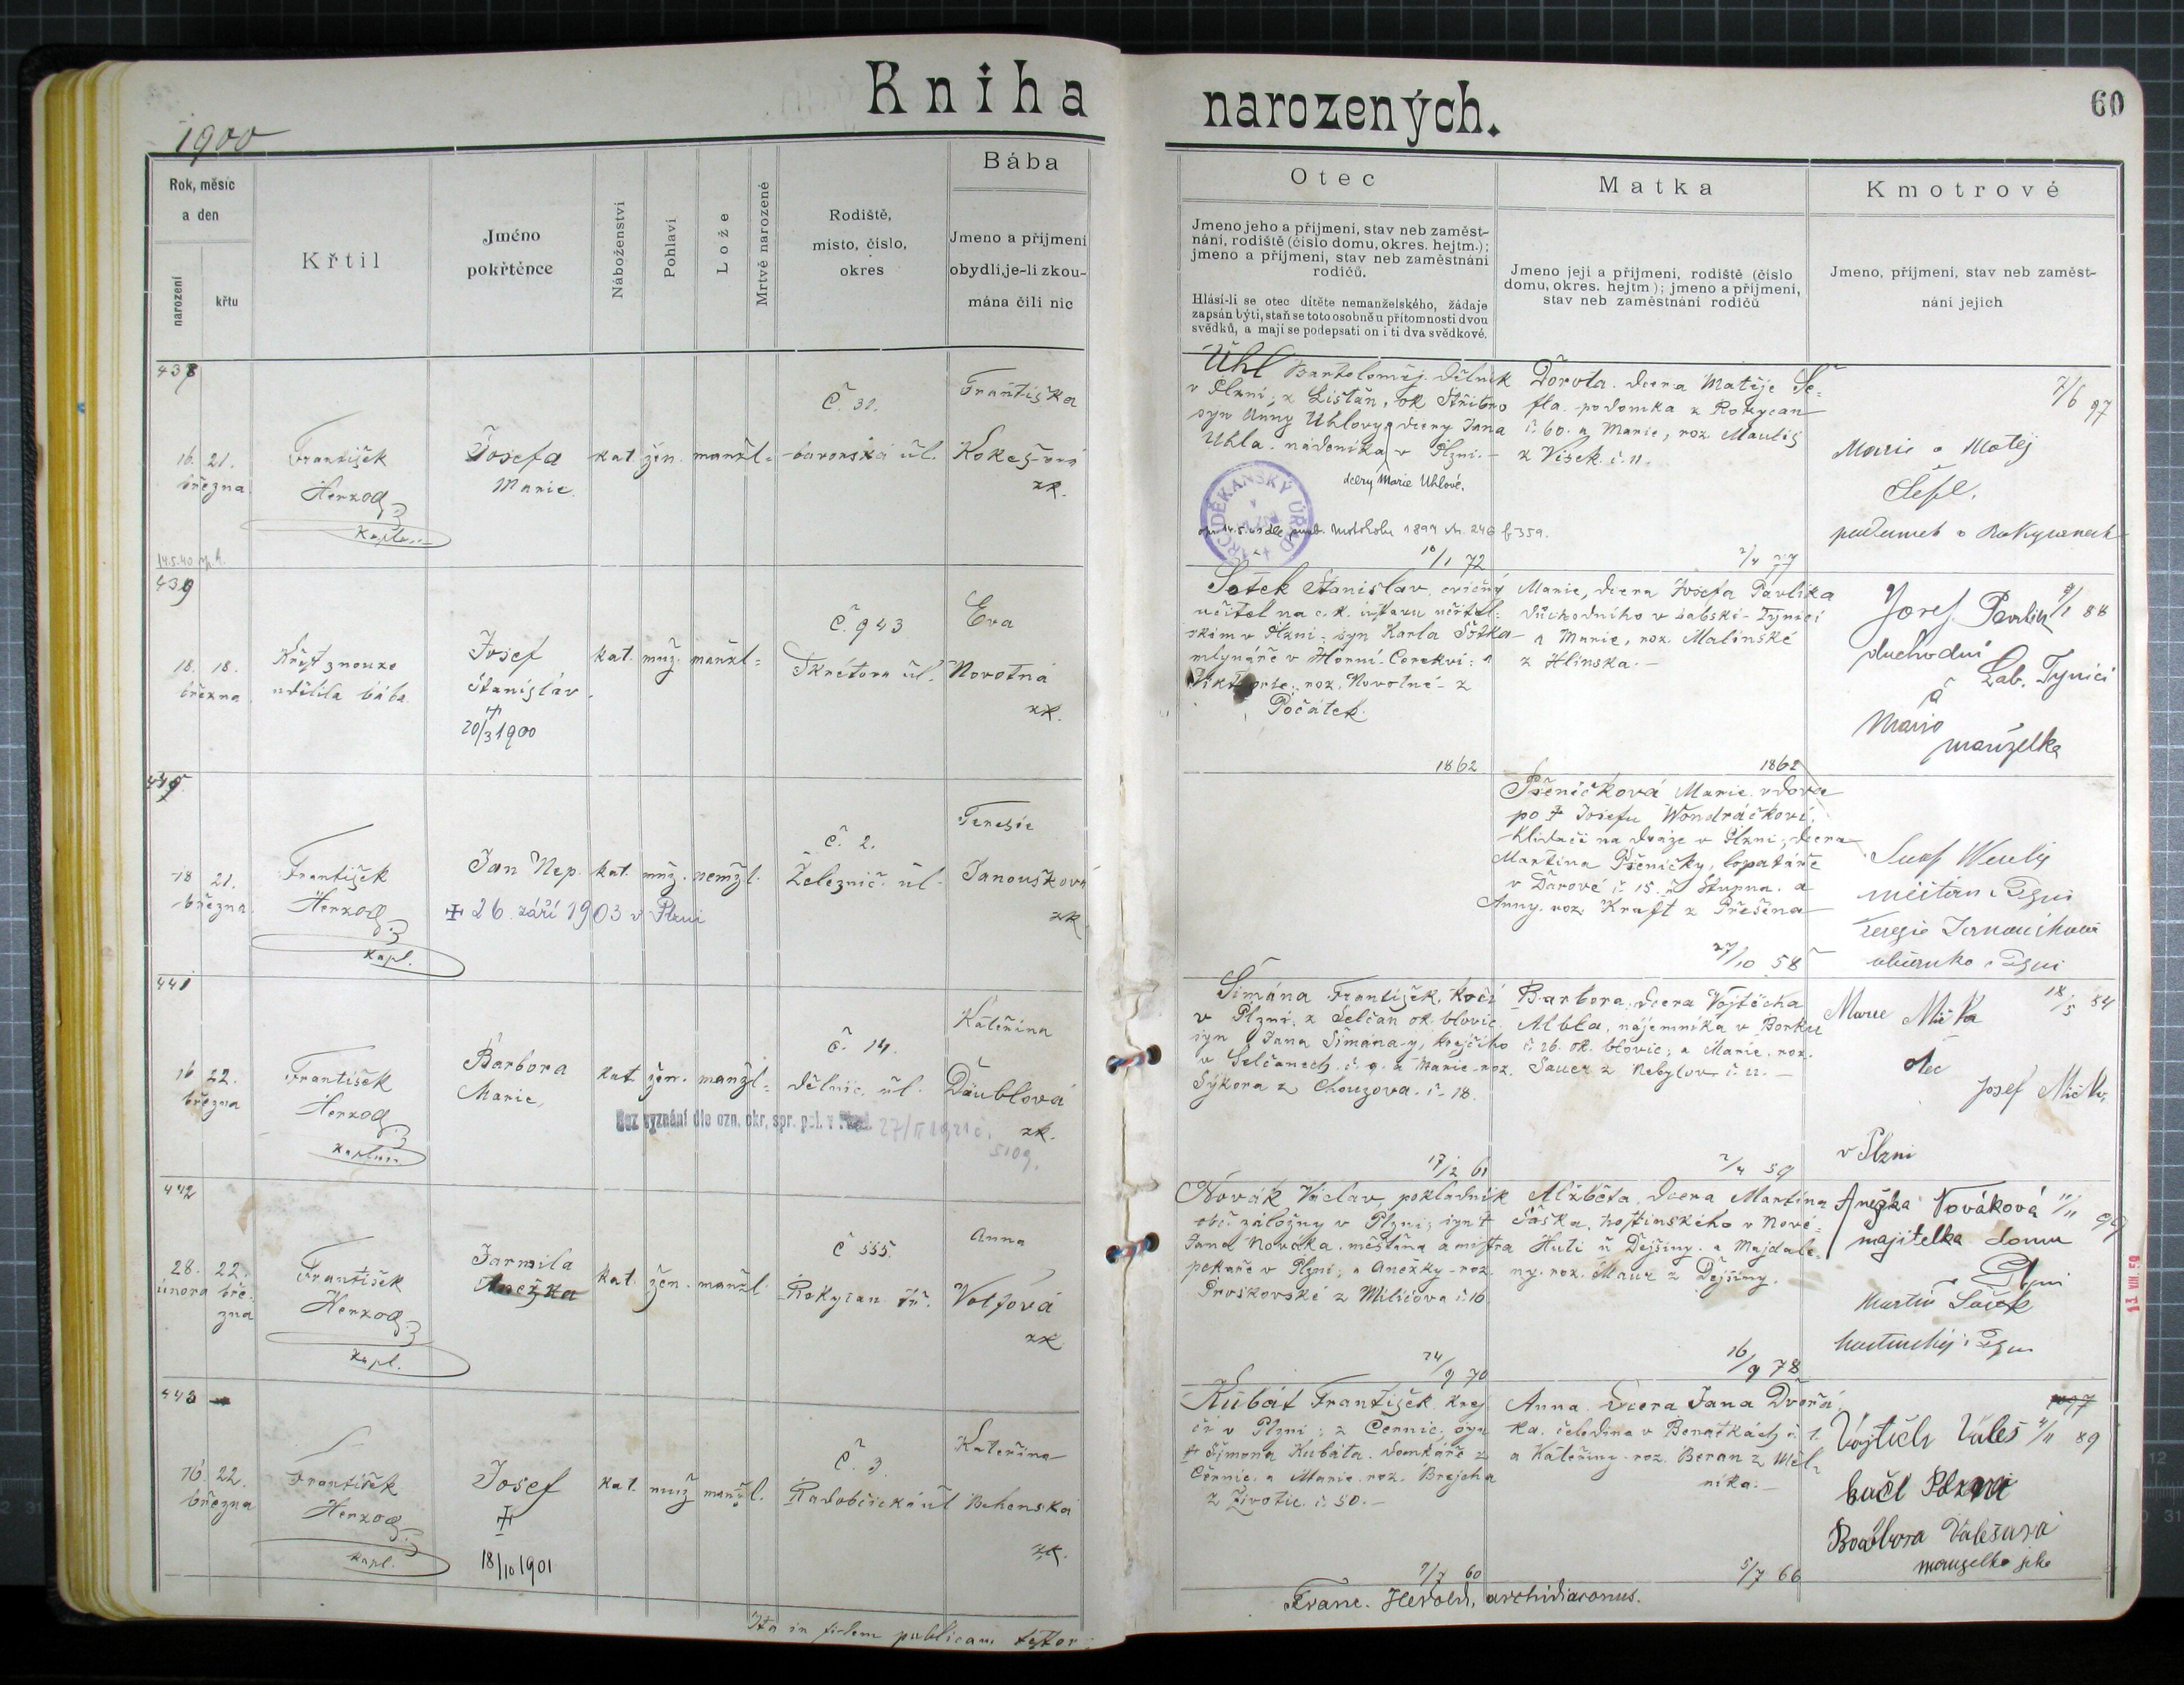 Kniha narozených.
60
1900
Rok, měsíc
a den
narození
křtu
Křtil
Jméno
pokřtěnce
Náboženství
Pohlaví
Lože
Mrtvě narozené
Rodiště,
místo, číslo,
okres
Bába
Jmeno a příjmení
obydlí, je-li zkou-
mána čili nic
Otec
Jmeno jeho a příjmení, stav neb zaměst-
nání, rodiště (číslo domu, okres. hejtm.);
jmeno a příjmení, stav neb zaměstnání
rodičů.
Hlásí-li se otec dítěte nemanželského, žádaje
zapsán býti, staň se toto osobně u přítomnosti dvou
svědků, a mají se podepsati on i ti dva svědkové.
Matka
Jmeno její a příjmení, rodiště (číslo
domu, okres. hejtm); jmeno a příjmení,
stav neb zaměstnání rodičů
Kmotrové
Jmeno, příjmení, stav neb zaměst-
nání jejich
438
16. 21.
března
František
Herzog
Kaplan
14.5.40
Josefa
Marie
kat žen. manžl.
Č. 31.
bavorská úl.
Františka
Kokeš
zk.
Uhl Bartoloměj. dělník
v Plzni; z Lištan, ok Stříbro
syn Anny Uhlovy, dcery Jana
Uhla. nádeníka v Plzni.
dcery Marie Uhlové.
ARCIDĚKANSKÝ ÚŘAD
10/1 72
Dorota. dcera Matěje Še-
fla. podomka z Rokycan
č. 60. a Marie, roz Maulis
z Vísek. č. 11.
2/4 77
7/6 97
Marie a Matěj
Šefl.
439
18. 18.
března
Křest z nouze
udělila bába.
Josef
Stanislav.
†
20/3 1900
kat. muž. manžl.
Č. 943
Škrétova úl.
Eva
Novotná
zk.
Šotek Stanislav. cvičný
učitel na c. k. ústavu učitel-
ském v Plzni: syn Karla Šotka
mlynáře v Horní-Cerekvi: a
roz. Novotné z
Počátek.
1862
Marie, dcera Josefa Pavlíka
důchodního v Labské-Týnici
a Marie, roz Malinské
z Hlinska.
1862
Josef Pavlík 9/1 88
duchodní
Lab. Tynici
a
Marie
manželka
440
18 21.
března
František
Herzog
Kapl.
Jan Nep.
✝ 26. září 1903 v Plzni
kat. muž. nemžl.
Č. 2.
Železnič. úl.
Teresie
Janoušková
zk
Pšeničková Marie. vdova
po † Josefu Wondráčkovi,
klidači na dráze v Plzni; dcera
Martina Pšeničky, lopatáře
v Darové č. 15. u Stupna. a
Anny. roz. Kraft z Břešena
27/10 58
měšťan v Plzni
Teresie Janoušková
v Plzni
441
16 22.
března
František
Herzog
Kaplan
Barbora
Marie,
kat žen. manžl.
Č. 14.
dělnic. úl.
Bez vyznání dle ozn. okr. spr. pol. v Plzni 27/II 1921 č.
5109.
Kateřina
Däublová
zk.
Šimána František, kočí
v Plzni. z Selčan ok. blovic.
syn Jana Šimána-y, krejčího
v Selčanech. č. 9. a Marie roz.
Sýkora z Chouzova. č. 18.
17/2 61
Barbora, dcera Vojtěcha
Albla, nájemníka v Borku
č. 26. ok. blovic; a Marie. roz.
Sauer z Nebylov č. 22.
2/4 59
Marie Mička 18/5 84
otec
Josef Mička,
v Plzni
442
28. 22.
února bře-
zna
František
Herzog
Kapl.
Jarmila
Anežka
kat. žen. manžl.
Č 555.
Rokycan tř.
Anna
Volfová
zk
Novák Václav, pokladník
obč. záložny v Plzni, syn †
Jana Nováka, měšťana a mistra
pekaře v Plzni; a Anežky roz.
Proskovské z Milícova č. 16.
24/9 70
Alžběta. dcera Martina
Šaška, hostinského v Nové-
Huti u Dejšiny. a Majdale-
ny. roz. Maur z Dejšiny.
16/9 78
Anežka Nováková 11/11 99
majitelka domu
Plzni
Martin Šašek
11 VIII. 59
443
16. 22.
března
František
Herzog
Kapl.
Josef
✝
18/10 1901
kat. muž manžl.
Č. 3.
Radobčická úl
Kateřina
Behenská
zk.
Kubát František. krej
čí v Plzni: z Černic; syn
† Šimona Kubáta. domkáře z
Černic. a Marie. roz. Brejcha
z Životic. č. 50.
7/7 60
Anna. dcera Jana Dvořá-
ka. čeledína v Benátkách č. 1.
a Kateřiny. roz. Beran z Měl-
níka.
5/7 66
Vojtěch Valeš 4/11 89
Plzni
Barbora Valešová
manželka jeho
Ita in fidem publicam testor:
Franc. Herold, archidiaconus.